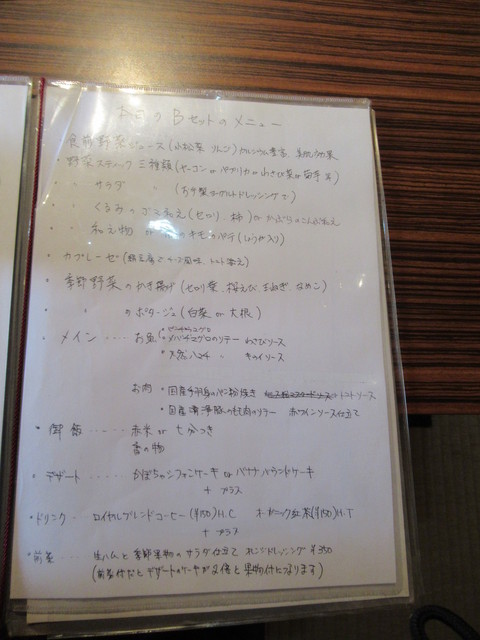 本日の Bセットのメニュー
食前野菜ジュース (小松菜 リンゴ) カルシウム豊富、美肌効果
野菜スティック 三種類 (ヤーコン or パプリカ or わさび菜 or
〃 サラダ (お手製ヨーグルトドレッシングで)
〃 くるみのごま和え (セロリ、柿) or かぶらのこんぶ和え
〃 和え物 or のキモのパテ (しょうが入り)
・カプレーゼ (
・季節野菜のかき揚げ (セロリ葉、桜えび 玉ねぎ なめこ)
・ 〃 のポタージュ (白菜 or 大根)
・メイン ---- お魚・
・メバチマグロのソテー わさびソース
・天然ハマチ 〃 きのイソース
お肉・国産 のパン粉焼き トマトソース
・国産清浄豚の もも肉のソテー 赤ワインソース仕立て
・御飯 ---- 赤米 or 七分つき
香の物
・デザート ---- かぼちゃシフォンケーキ or バナナパウンドケーキ
+ プラス
・ドリンク --- ロイヤルブレンドコーヒー (¥150) H.C オーガニック紅茶 (¥150) H.T
+ プラス
・前菜 --- 生ハムと季節果物のサラダ仕立て オレンジドレッシング ¥350
(前菜付だとデザートのケーキが2倍と果物付になります)